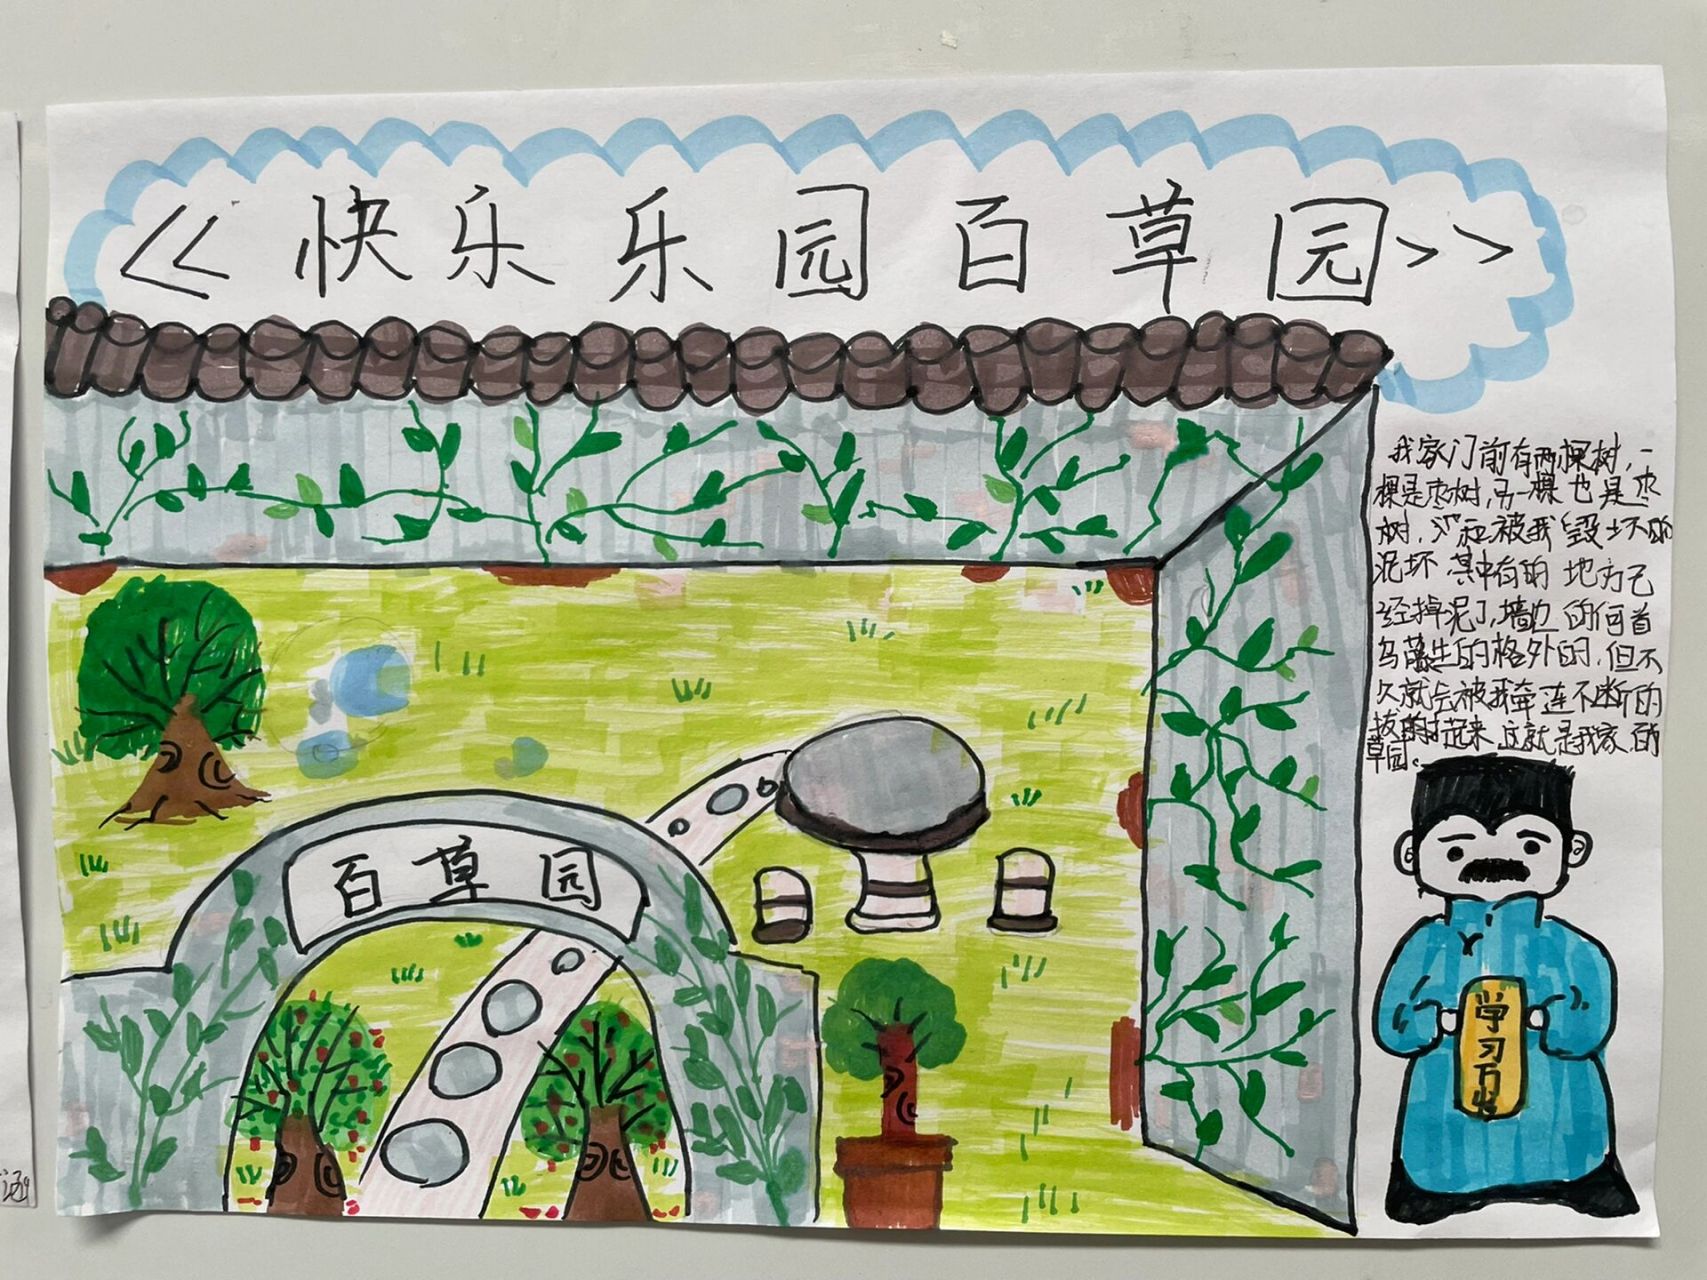 《快乐乐园百草园》
我家门前有两棵树,一
棵是枣树,另一棵也是枣
树,被我毁坏的
泥坏其中有的地方已
经掉泥了,墙边的何首
乌藤生的格外的,但不
久就会被我牵连不断的
拔的打起来这就是我家的
草园。
百草园
学习万岁